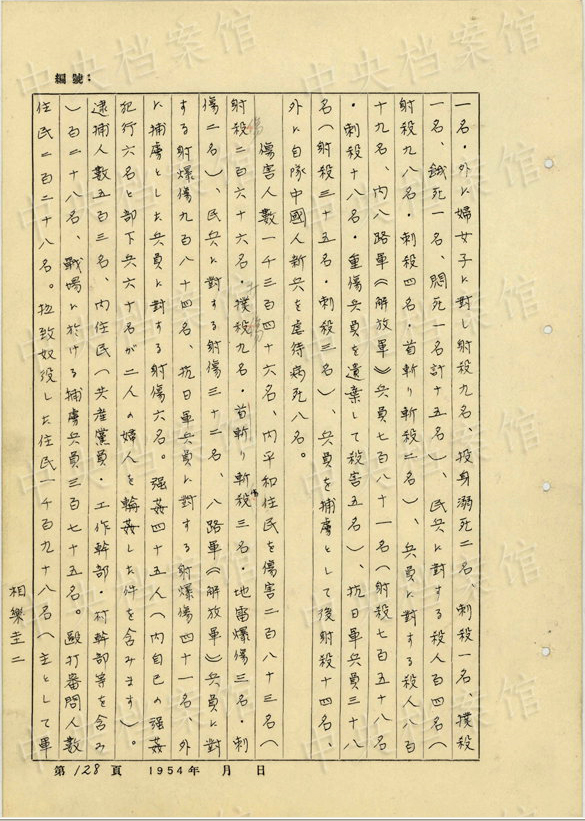 編號：
一名・外ニ婦女子ニ対し射殺九名、投身溺死二名、刺殺一名、撲殺
一名、餓死一名、悶死一名計十五名）、民兵ニ對する殺人百四名（
射殺九八名・刺殺四名・首斬り斬殺二名）、兵員ニ對する殺人八百
十九名、内八路軍《解放軍》兵員七百八十一名（射殺七百五十八名
・刺殺十八名・重傷兵員を遺棄して殺害五名）、抗日軍兵員三十八
名（射殺三十五名・刺殺三名）、兵員を捕虜として後射殺十四名、
外ニ自隊中國人新兵を虐待病死八名。
傷害人数一千三百四十六名、内平和住民を傷害二百八十三名（
射殺二百六十六名・撲殺九名・首斬り斬殺三名・地雷爆傷三名・刺
傷二名）、民兵ニ對する射傷三十二名、八路軍《解放軍》兵員ニ對
する射爆傷九百八十四名、抗日軍兵員ニ對する射爆傷四十一名、外
ニ捕虜とした兵員ニ對する射傷六名。強姦四十五人（内自己の強姦
犯行六名と部下兵六十名が二人の婦人を輪姦した件を含みます）。
逮捕人数五百三名、内住民（共産黨員・工作幹部・村幹部等を含み
）百二十八名、戰場ニ於ける捕虜兵員三百七十五名。毆打審問人数
住民二百二十八名。拉致奴役した住民一千百九十八名（主として軍
相樂圭二
第128頁 1954年 月 日
中央档案馆